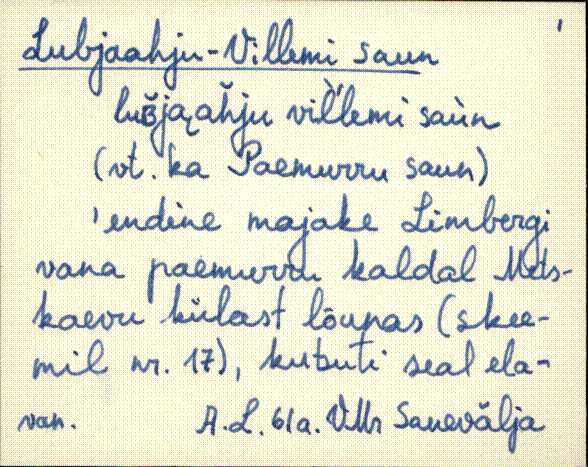 Lubjaahju-Villemi saun
luʙ̆ja̮ăhju vil̀'lemi saùn
(vt. ka Paemurru saun)
'endine majake Limbergi
vana paemurru kaldal Mets-
kaevu külast lõunas (skee-
mil nr. 17), kutsuti seal ela-
van. A.L. 61a. VMr Sanevälja